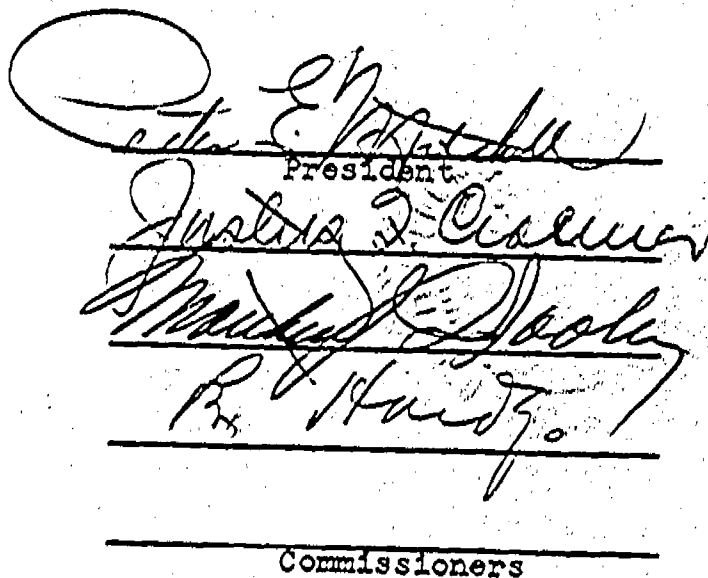 Peter E. Mitchell
President
Justus F. Craemer
Hooley
R. Hardy.
Commissioners